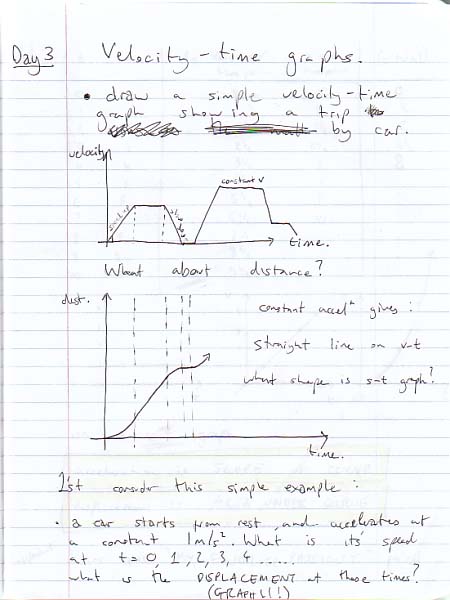 Day 3
Velocity - time graphs.
• draw a simple velocity-time
graph showing a trip
by car.
velocity
constant v
time.
What about distance?
dist.
constant accelⁿ gives:
straight line on v-t
what shape is s-t graph?
time.
1st consider this simple example:
• a car starts from rest, and accelerates at
a constant 1m/s². What is it's speed
at t=0, 1, 2, 3, 4 .....
what is the DISPLACEMENT at those times?
(GRAPH!!!)